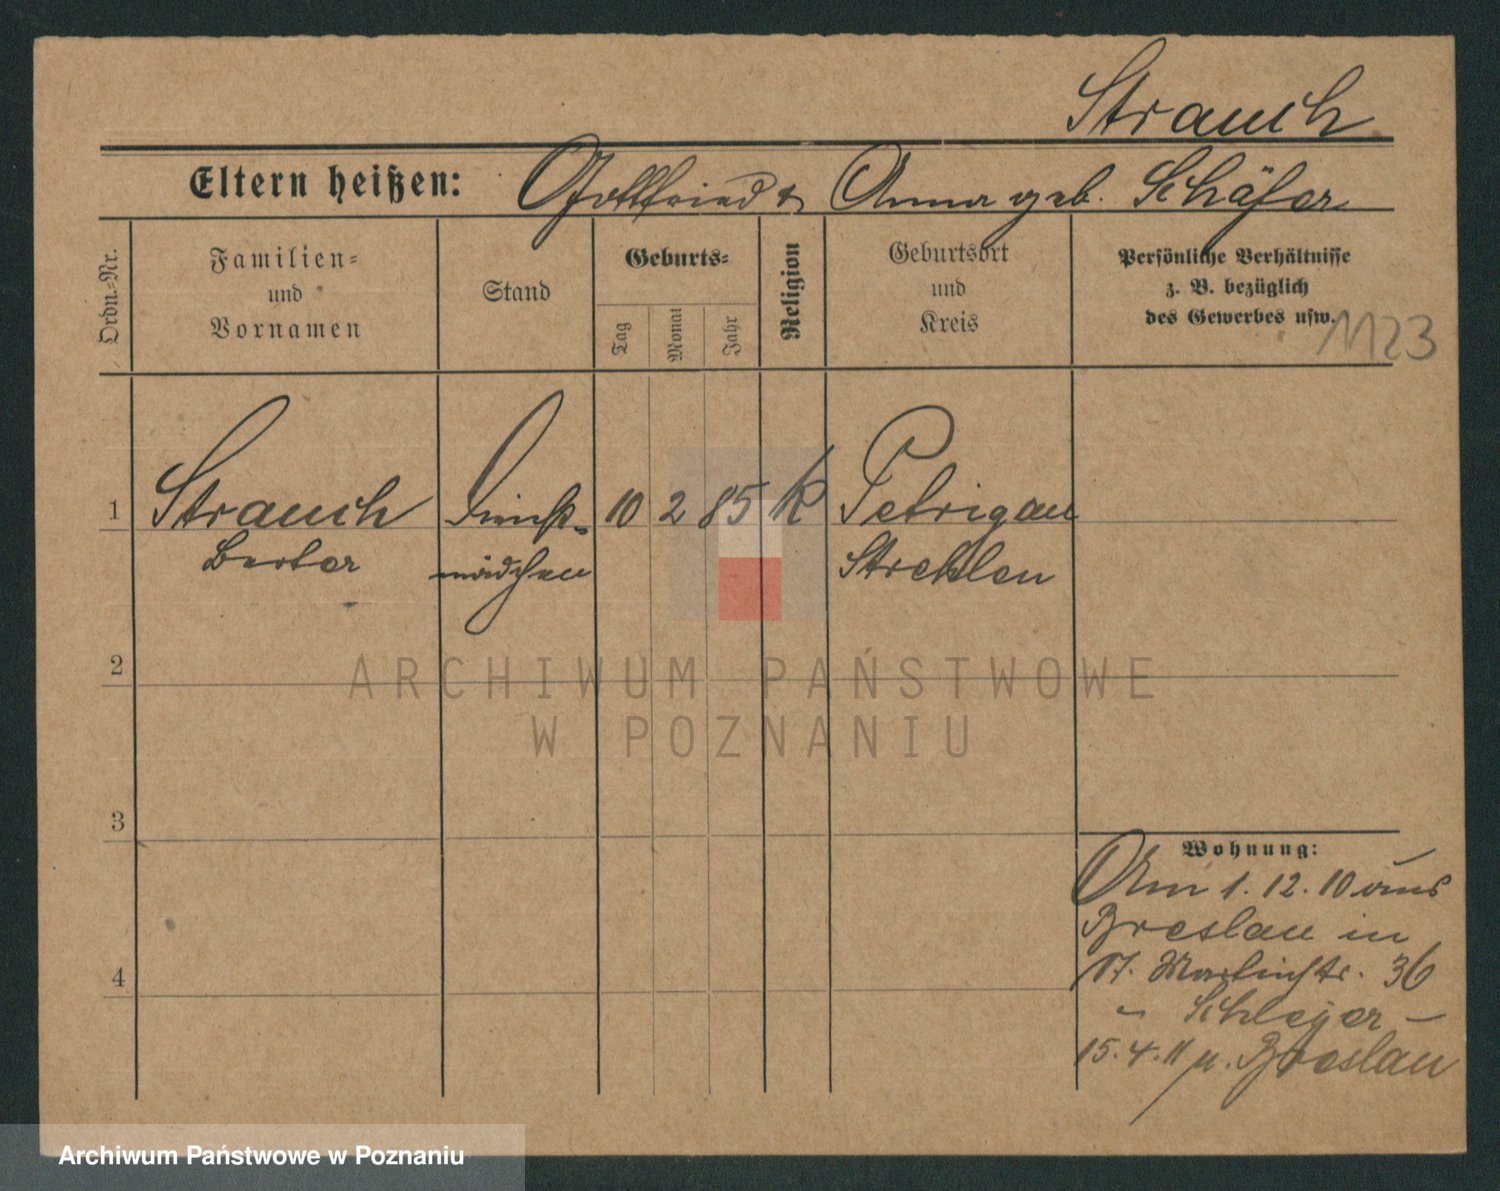 Strauch
Eltern heißen: Gottfried & Anna geb. Schäfer
Ordn.-Nr.
Familien-
und
Vornamen
Stand
Geburts-
Tag
Monat
Jahr
Religion
Geburtsort
und
Kreis
Persönliche Verhältnisse
z. B. bezüglich
des Gewerbes usw.
1123
1 Strauch Dienst- 10 2 85 K Petrigau
Berta mädchen Strehlen
2
3
4
Wohnung:
Am 1. 12. 10 aus
Breslau in
St. Martinstr. 36
- Schleyer -
15.4.11 n. Breslau
ARCHIWUM PAŃSTWOWE
W POZNANIU
Archiwum Państwowe w Poznaniu